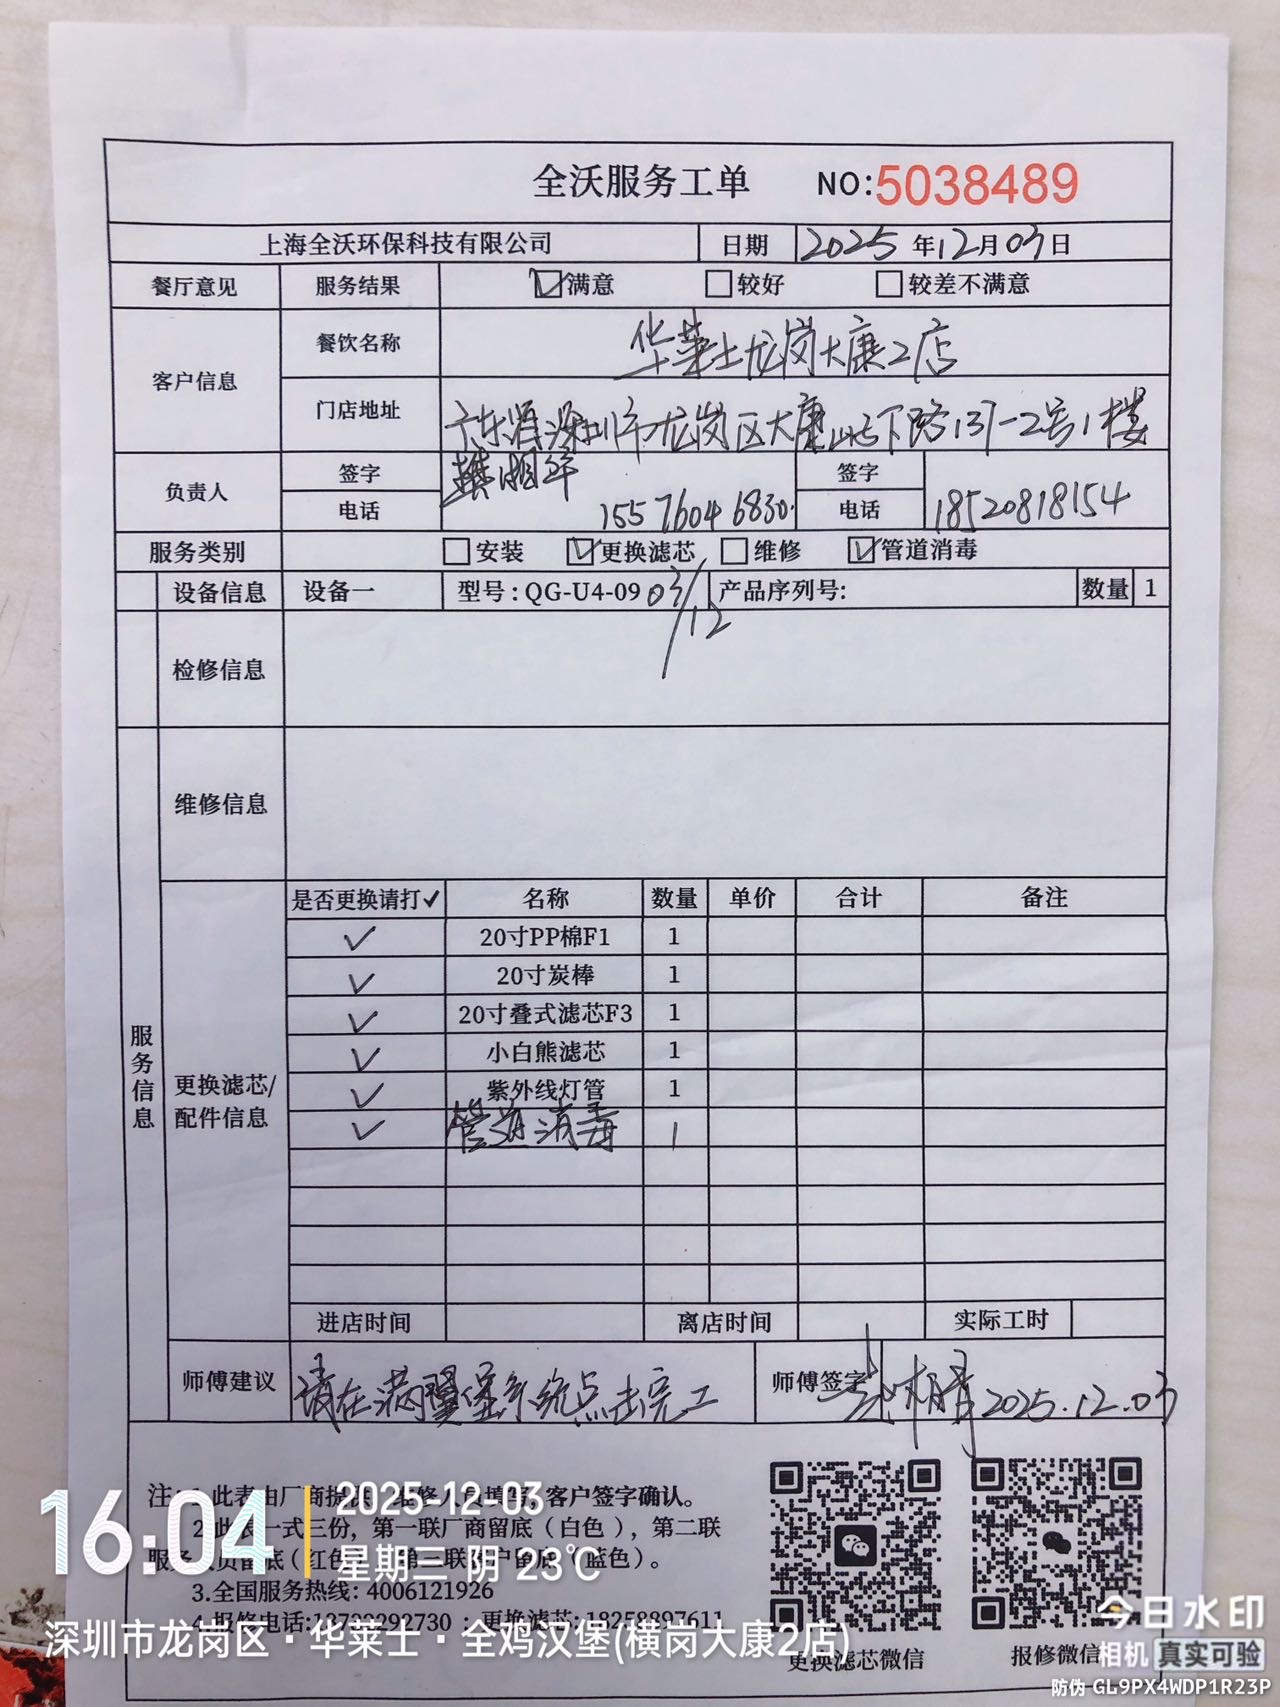 全沃服务工单 NO:5038489
上海全沃环保科技有限公司 日期 2025年12月03日
餐厅意见 服务结果 ☑满意 □较好 □较差不满意
客户信息 餐饮名称 华莱士龙岗大康2店
门店地址 广东省深圳市龙岗区大康山下路137-2号1楼
负责人 签字 签字
电话 15576046830 电话 18520818154
服务类别 □安装 ☑更换滤芯 □维修 ☑管道消毒
设备信息 设备一 型号:QG-U4-09 03/12 产品序列号: 数量 1
检修信息
维修信息
服务信息
更换滤芯/配件信息
是否更换请打✓ 名称 数量 单价 合计 备注
✓ 20寸PP棉F1 1
✓ 20寸炭棒 1
✓ 20寸叠式滤芯F3 1
✓ 小白熊滤芯 1
✓ 紫外线灯管 1
✓ 管道消毒 1
进店时间 离店时间 实际工时
师傅建议 请在满翼堡系统点击完工 师傅签字 2025.12.03
客户签字确认。
一式三份，第一联厂商留底（白色），第二联
（蓝色）。
3.全国服务热线: 4006121926
更换滤芯: 18258897611
更换滤芯微信 报修微信
16:04 2025-12-03
星期三 阴 23℃
深圳市龙岗区·华莱士·全鸡汉堡(横岗大康2店)
今日水印
相机 真实可验
防伪 GL9PX4WDP1R23P